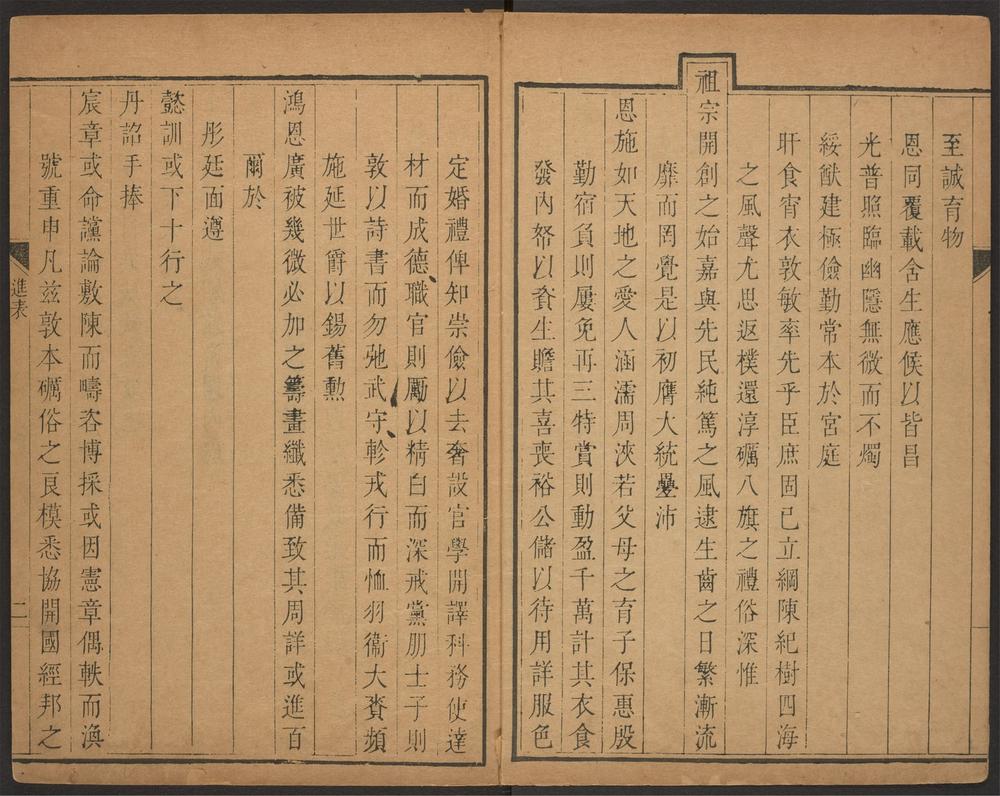 至誠育物
恩同覆載含生應候以皆昌
光普照臨幽隱無微而不燭
綏猷建極儉勤常本於宮庭
旰食宵衣敦敏率先乎臣庶固已立綱陳紀樹四海
之風聲尤思返樸還淳礪八旗之禮俗深惟
祖宗開創之始嘉與先民純篤之風逮生齒之日繁漸流
靡而罔覺是以初膺大統疊沛
恩施如天地之愛人涵濡周浹若父母之育子保惠殷
勤宿負則屢免再三特賞則動盈千萬計其衣食
發內帑以資生贍其喜喪裕公儲以待用詳服色
定婚禮俾知崇儉以去奢設官學開譯科務使達
材而成德職官則勵以精白而深戒黨朋士子則
敦以詩書而勿弛武守軫戎行而恤羽衞大賚頻
施延世爵以錫舊勲
鴻恩廣被幾微必加之籌畫纖悉備致其周詳或進百
爾於
彤廷面遵
懿訓或下十行之
丹詔手捧
宸章或命讜論敷陳而疇咨博採或因憲章偶軼而渙
號重申凡兹敦本礪俗之良模悉協開國經邦之
進表
二